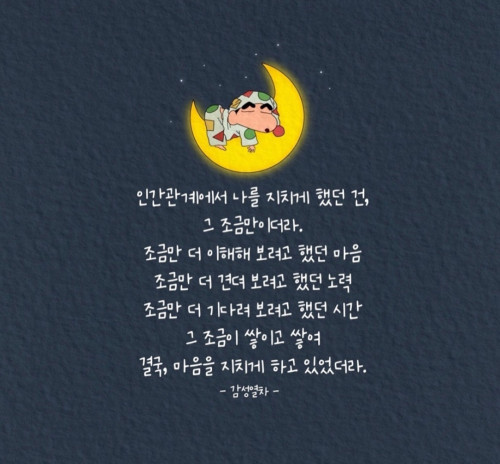 인간관계에서 나를 지치게 했던 건,
그 조금만이더라.
조금만 더 이해해 보려고 했던 마음
조금만 더 견뎌 보려고 했던 노력
조금만 더 기다려 보려고 했던 시간
그 조금이 쌓이고 쌓여
결국, 마음을 지치게 하고 있었더라.
- 감성열차 -